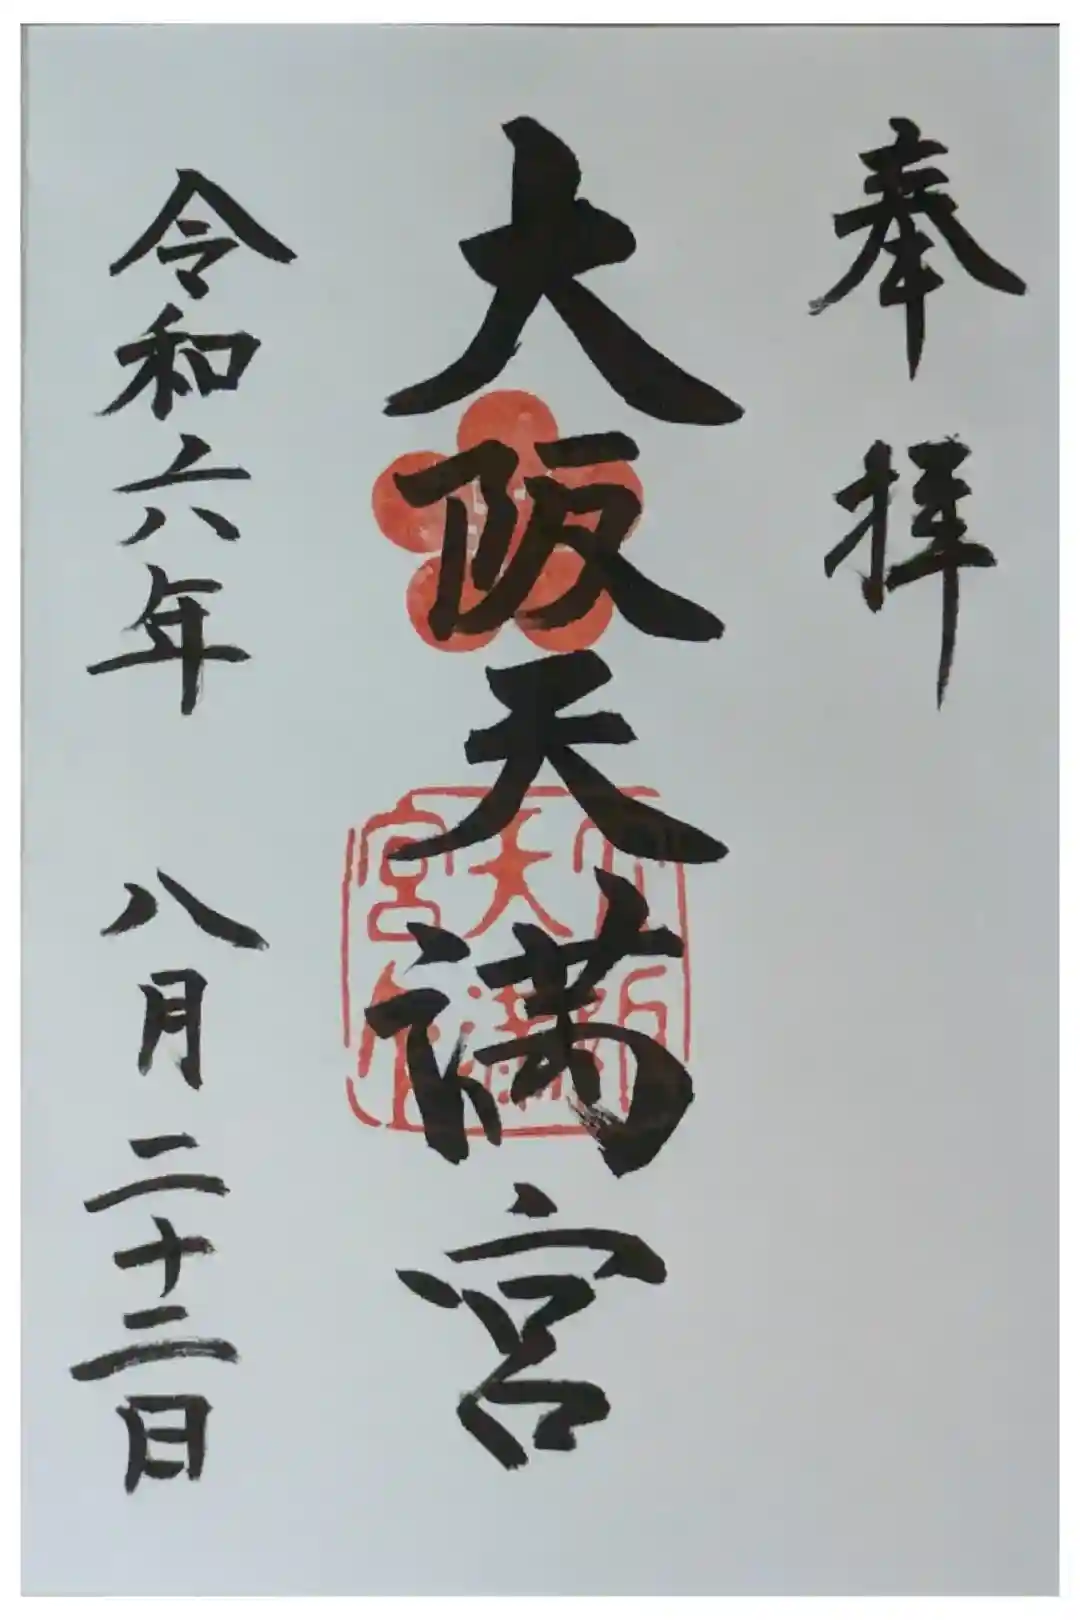 奉拝
大阪天満宮
令和六年 八月二十二日